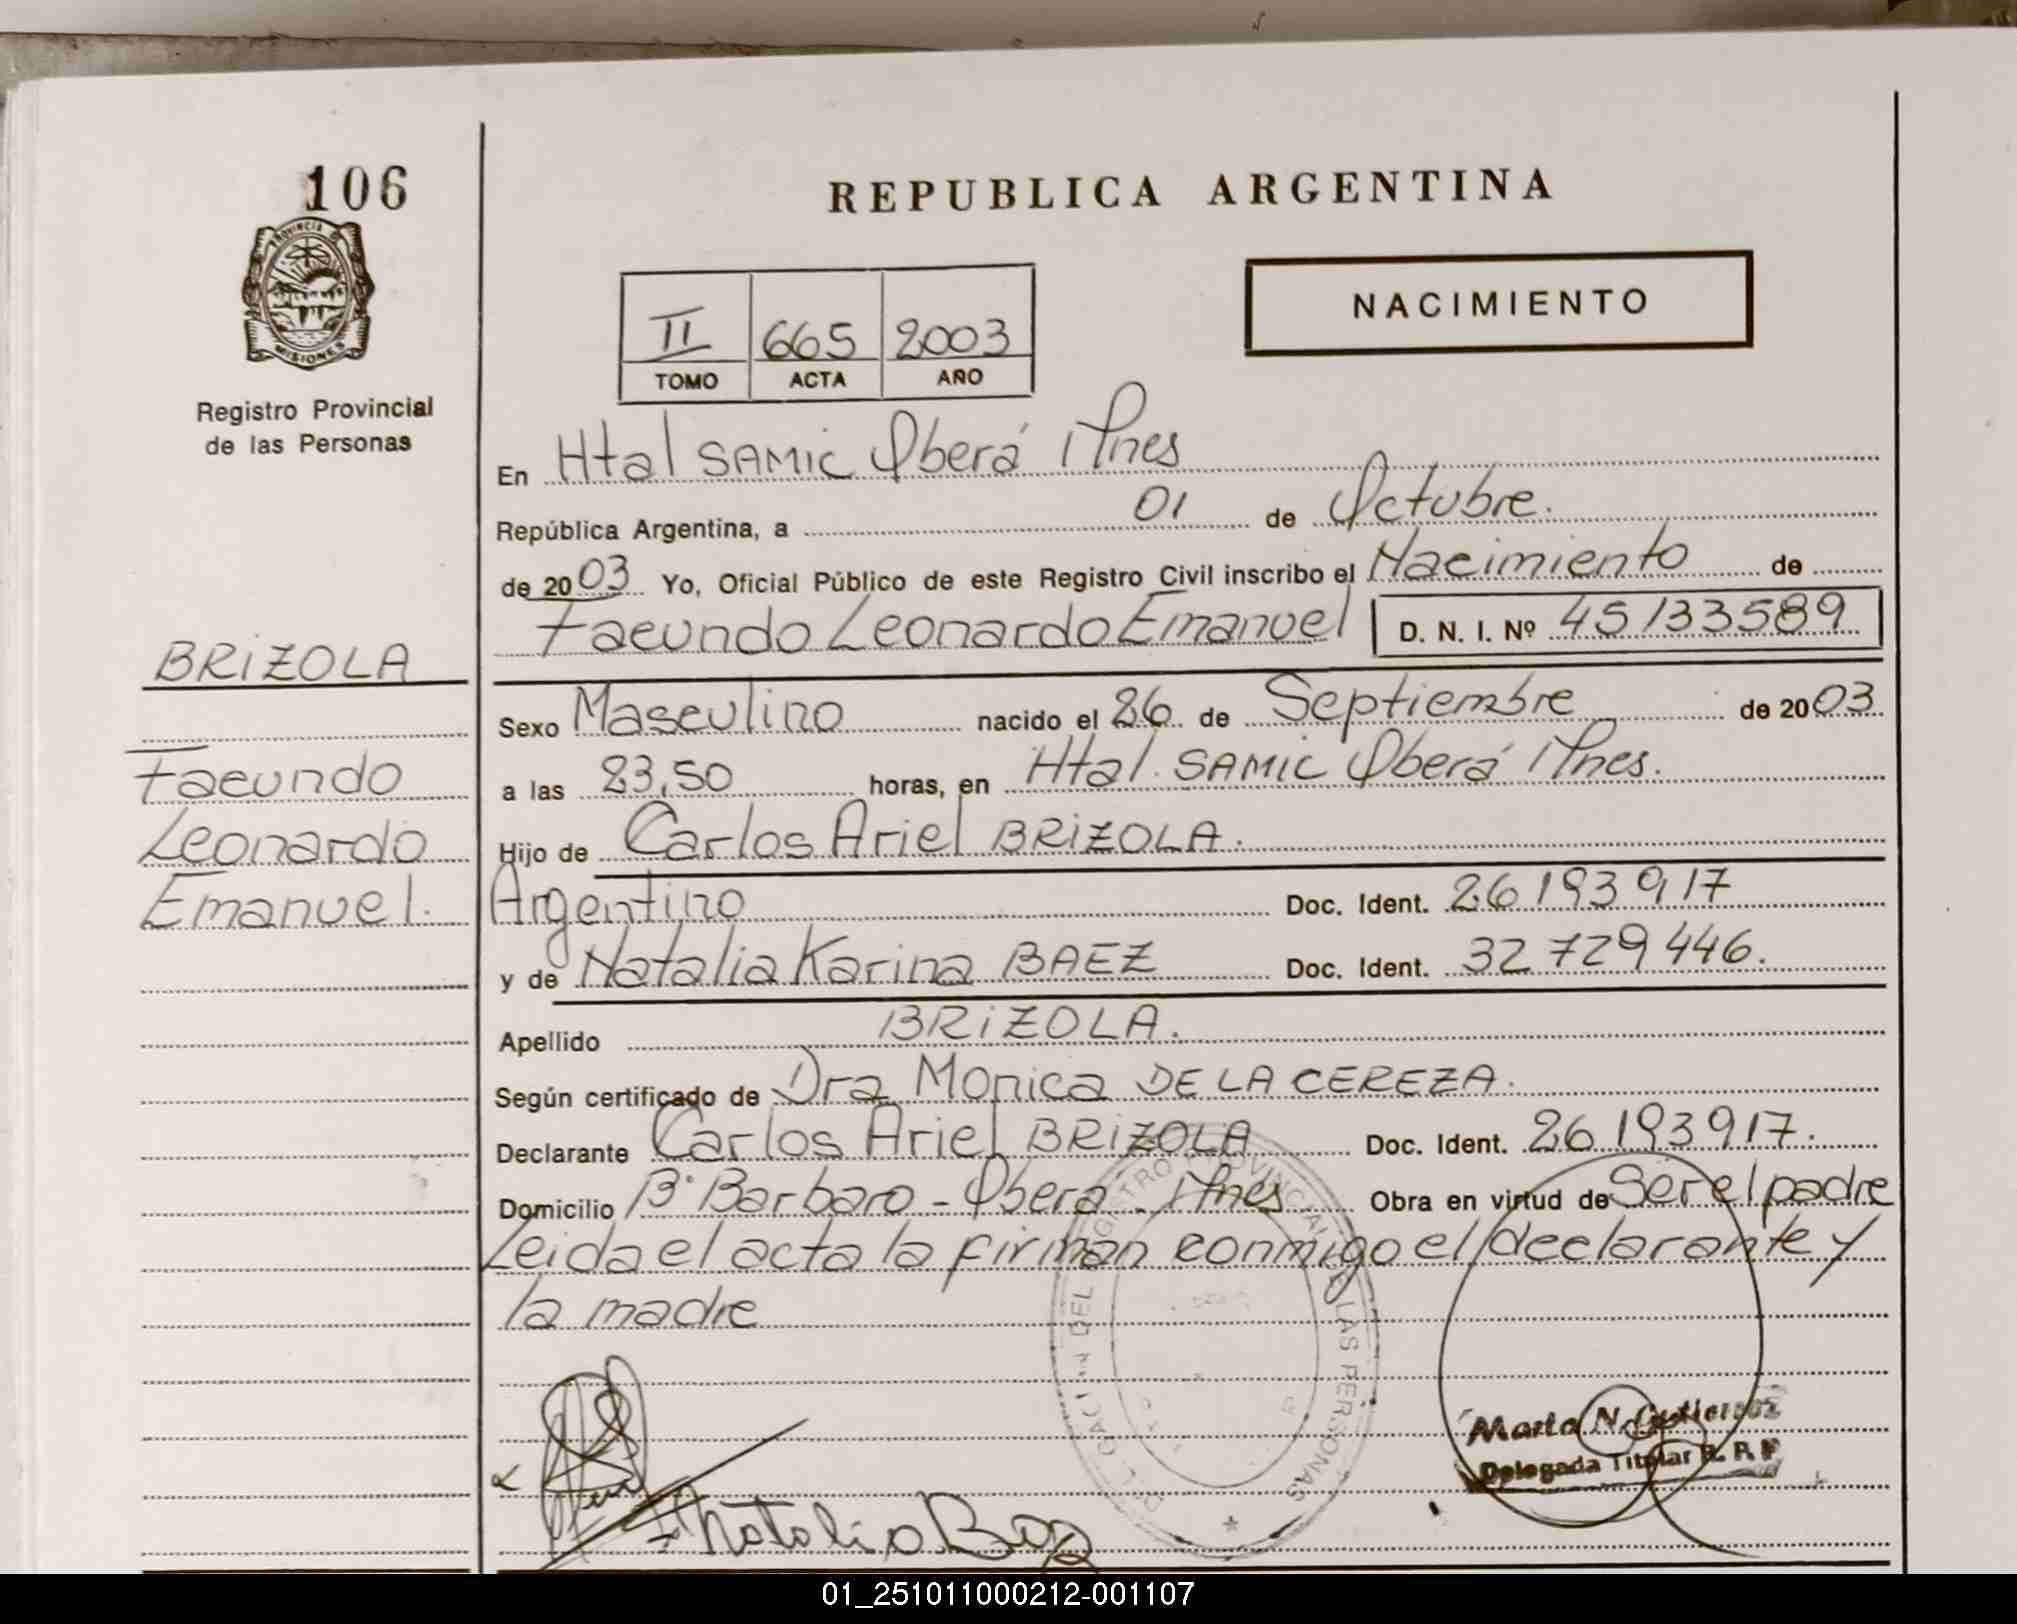 106
PROVINCIA DE
MISIONES
Registro Provincial
de las Personas
BRIZOLA
Facundo
Leonardo
Emanuel.
REPUBLICA ARGENTINA
NACIMIENTO
II 665 2003
TOMO ACTA AÑO
En Htal SAMIC Oberá Mnes
República Argentina, a 01 de Octubre.
de 2003 Yo, Oficial Público de este Registro Civil inscribo el Nacimiento de
Facundo Leonardo Emanuel D. N. I. Nº 45133589
Sexo Masculino nacido el 26 de Septiembre de 2003
a las 23,50 horas, en Htal. SAMIC Oberá Mnes.
Hijo de Carlos Ariel BRIZOLA.
Argentino Doc. Ident. 26193917
y de Natalia Karina BAEZ Doc. Ident. 32729446.
Apellido BRIZOLA.
Según certificado de Dra Monica DE LA CEREZA.
Declarante Carlos Ariel BRIZOLA Doc. Ident. 26193917.
Domicilio Bº Barbaro - Obera - Mnes Obra en virtud de Ser el padre
Leida el acta la firman conmigo el declarante y
la madre
REGISTRO PROVINCIAL DE LAS PERSONAS
Natalia
Delegada Titular R. P. P
01_251011000212-001107